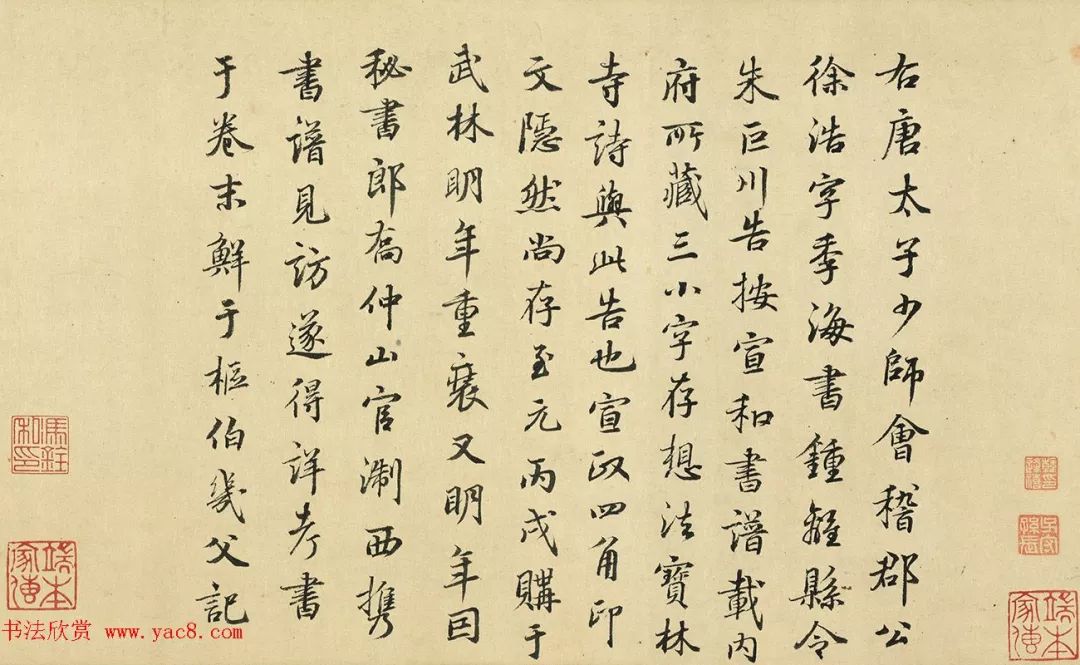 右唐太子少師會稽郡公
徐浩字季海書鍾離縣令
朱巨川告按宣和書譜載内
府所藏三小字存想法寶林
寺詩與此告也宣政四角印
文隱然尚存至元丙戌購于
武林明年重裝又明年因
秘書郎喬仲山官淛西携
書譜見訪遂得詳考書
于卷末鮮于樞伯幾父記
端本
家傳
端本
家傳
书法欣赏 www.yac8.com